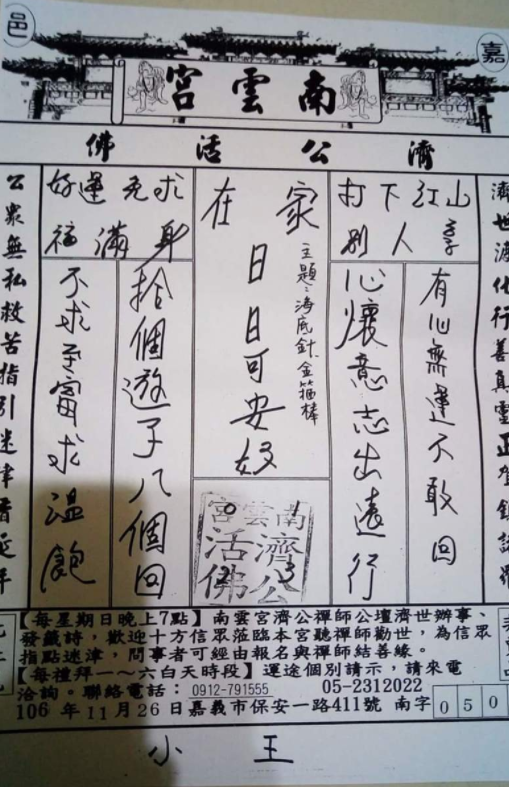 嘉邑
南雲宮
濟公活佛
濟世渡化行善真靈正駕鎮
打下江山
別人享
有心無運不敢回
心懷意志出遠行
在家
日日可安好
主題：海底針金箍棒
好運免求
福滿身
拾個遊子八個回
不求至富求溫飽
公眾無私救苦指引迷津
南雲宮
濟公
活佛
【每星期日晚上7點】南雲宮濟公禪師公壇濟世辦事、
發籤詩，歡迎十方信眾蒞臨本宮聽禪師勸世，為信眾
指點迷津，問事者可經由報名與禪師結善緣。
【每禮拜一～六白天時段】運途個別請示，請來電
洽詢。聯絡電話：0912-791555 05-2312022
106 年11月26日嘉義市保安一路411號 南字050
小王